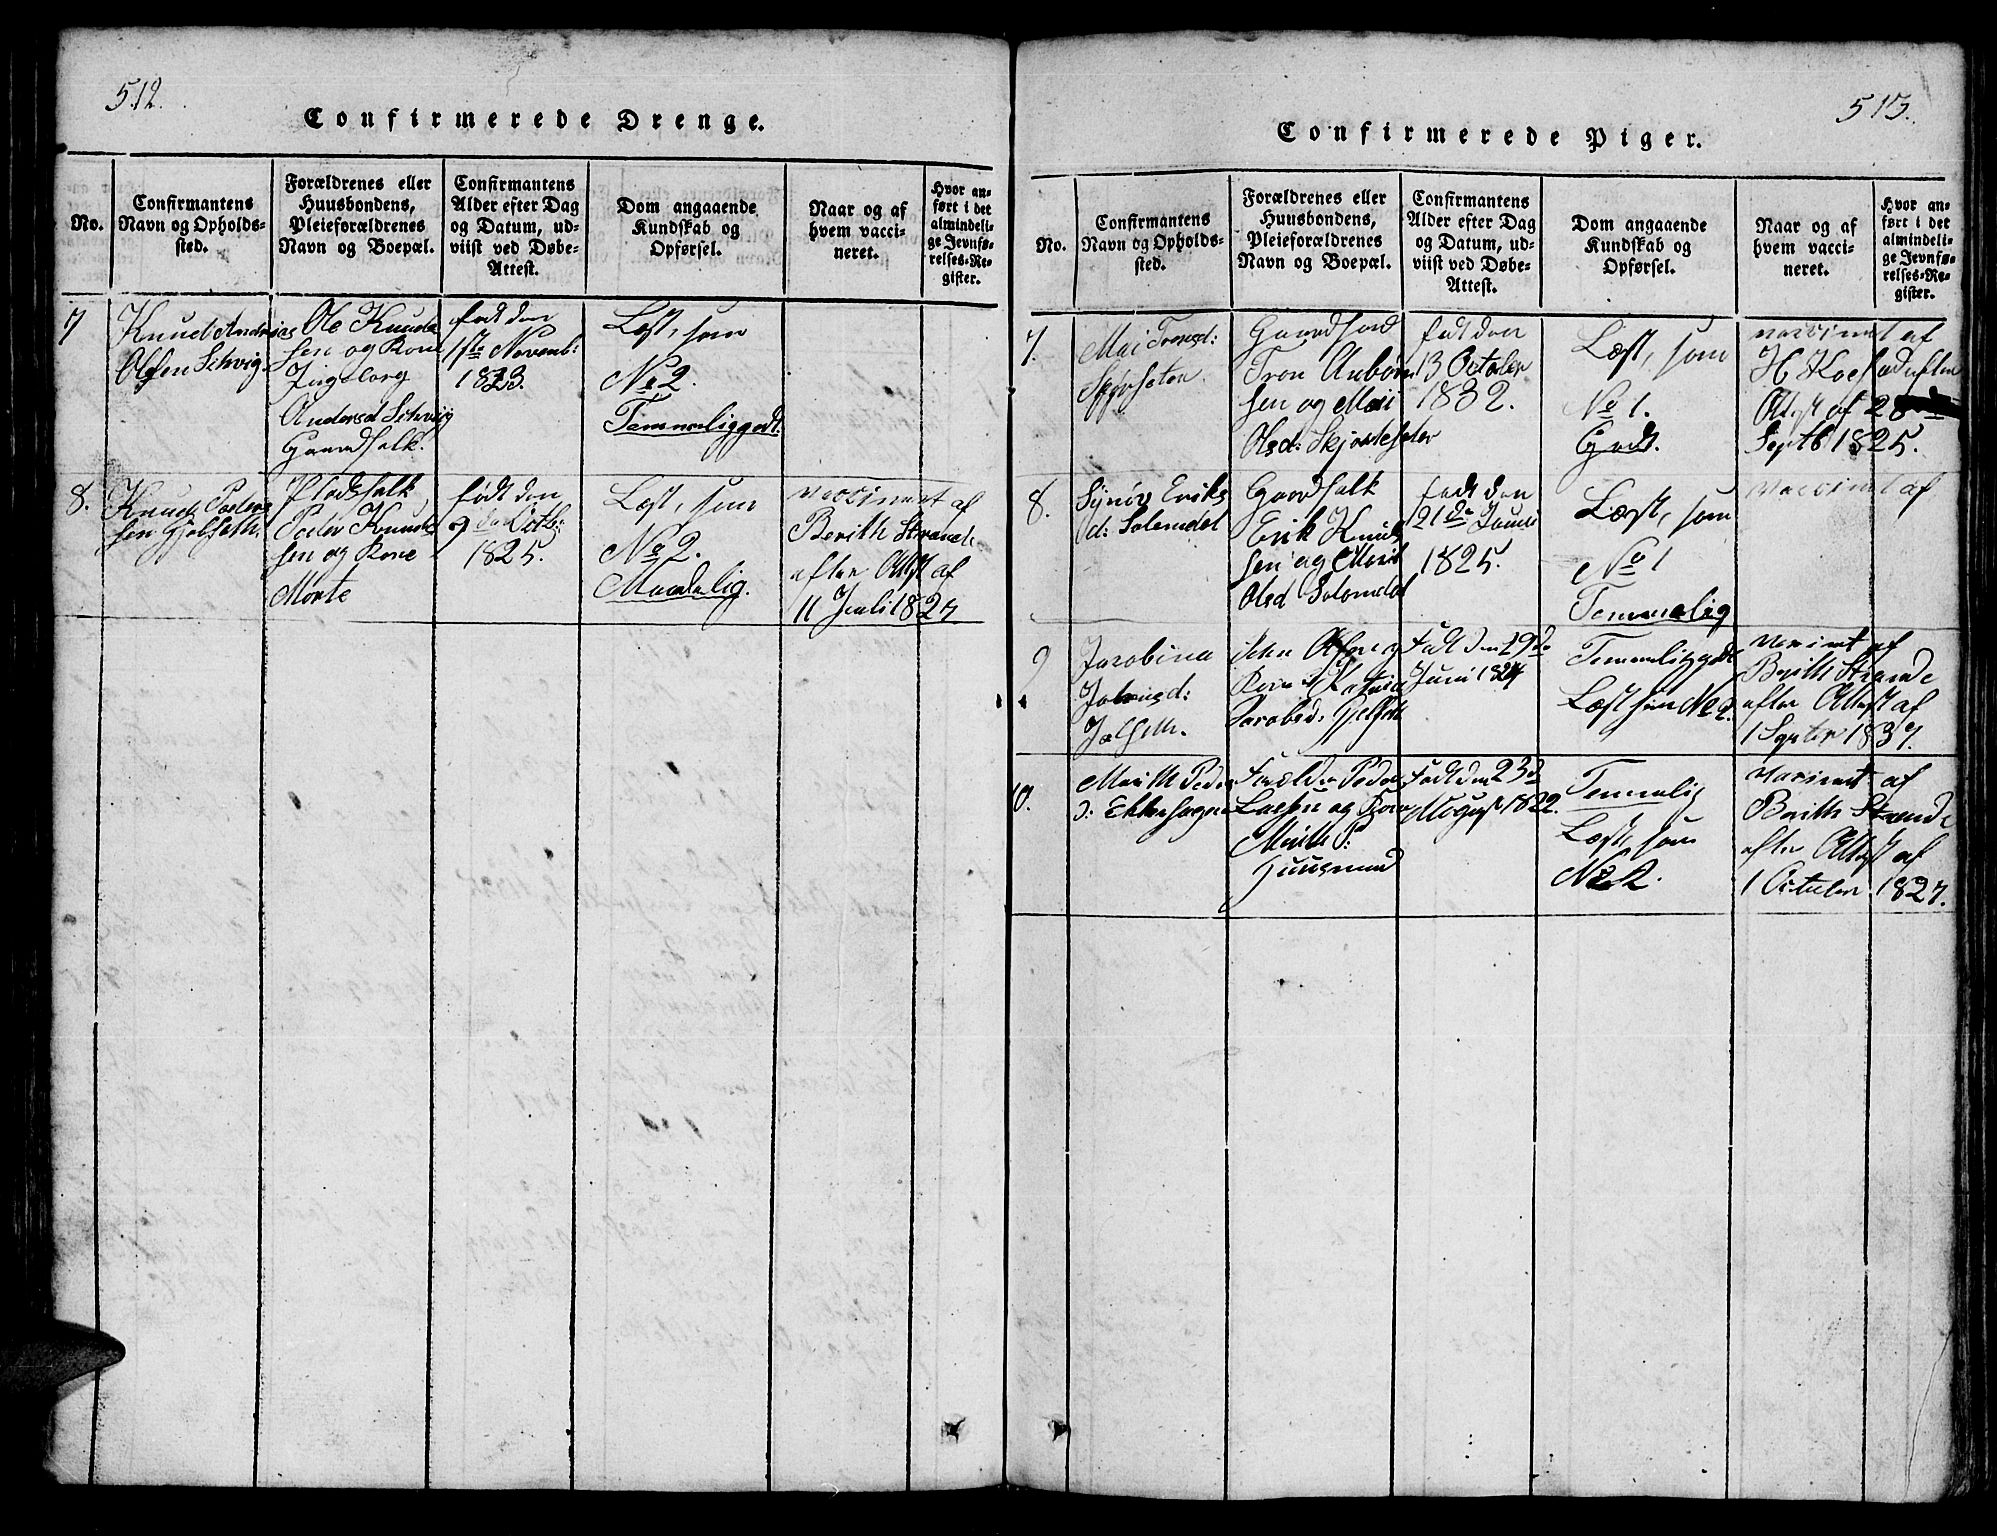 512.
Confirmerede Drenge.
No.
Confirmantens
Navn og Opholds-
sted.
Forældrenes eller
Huusbondens,
Pleieforældrenes
Navn og Boepæl.
Confirmantens
Alder efter Dag
og Datum, ud-
viist ved Døbe-
Attest.
Dom angaaende
Kundskab og
Opførsel.
Naar og af
hvem vacci-
neret.
Hvor an-
ført i det
almindeli-
ge Jevnfø-
relses-Re-
gister.
7
Knud Andreas
Olsen
Ole Knud
sen og Kone
Ingeborg
Andersd
Gaardfolk.
født den
1ste Novemb:
1823.
Læst, som
No 2.
Temmeliggodt.
8.
Knud Peder
sen Gjelseth.
Pladsfolk
Peder Knud
sen og Kone
Marte
født den
9 Octb:
1825.
Læst, som
No 2.
Maadelig.
vaccineret af
Berith Strande
efter Attest af
11 Juli 1827
513.
Confirmerede Piger.
No.
Confirmantens
Navn og Opholds-
sted.
Forældrenes eller
Huusbondens,
Pleieforældrenes
Navn og Boepæl.
Confirmantens
Alder efter Dag
og Datum, ud-
viist ved Døbe-
Attest.
Dom angaaende
Kundskab og
Opførsel.
Naar og af
hvem vacci-
neret.
Hvor an-
ført i det
almindeli-
ge Jevnfø-
relses-Re-
gister.
7.
Mari Tronsd:
Gaardfolk
Tron
sen og Mari
Olsd:
født den
13 October
1832.
Læst, som
No 1.
Godt.
vaccineret af
H. Koe
Attest af 28
Septb 1825.
8.
Synøv Eriks
d: Solemdal
Gaardfolk
Erik Knud
sen og Marit
Olsd Solemdal
født den
21de Juni
1825.
Læst, som
No 1
Temmelig
vaccineret af
9
Jacobina
Johnsd:
Jelseth.
John Olsen og
Kone
Jacobsd: Gjelseth
Født den 29de
Juni 1824
Temmeliggodt
Læst som No 2.
vaccineret af
Berith Strande
efter Attest af
1 Septer 1837.
10.
Marith Peder
d:
Forælder Peder
Larsen og Kone
Marith P:
Huusmand
Født den 23d
August 1822.
Temmelig
Læst, som
No 2.
vaccineret af
Berith Strande
efter Attest af
1 October 1827.